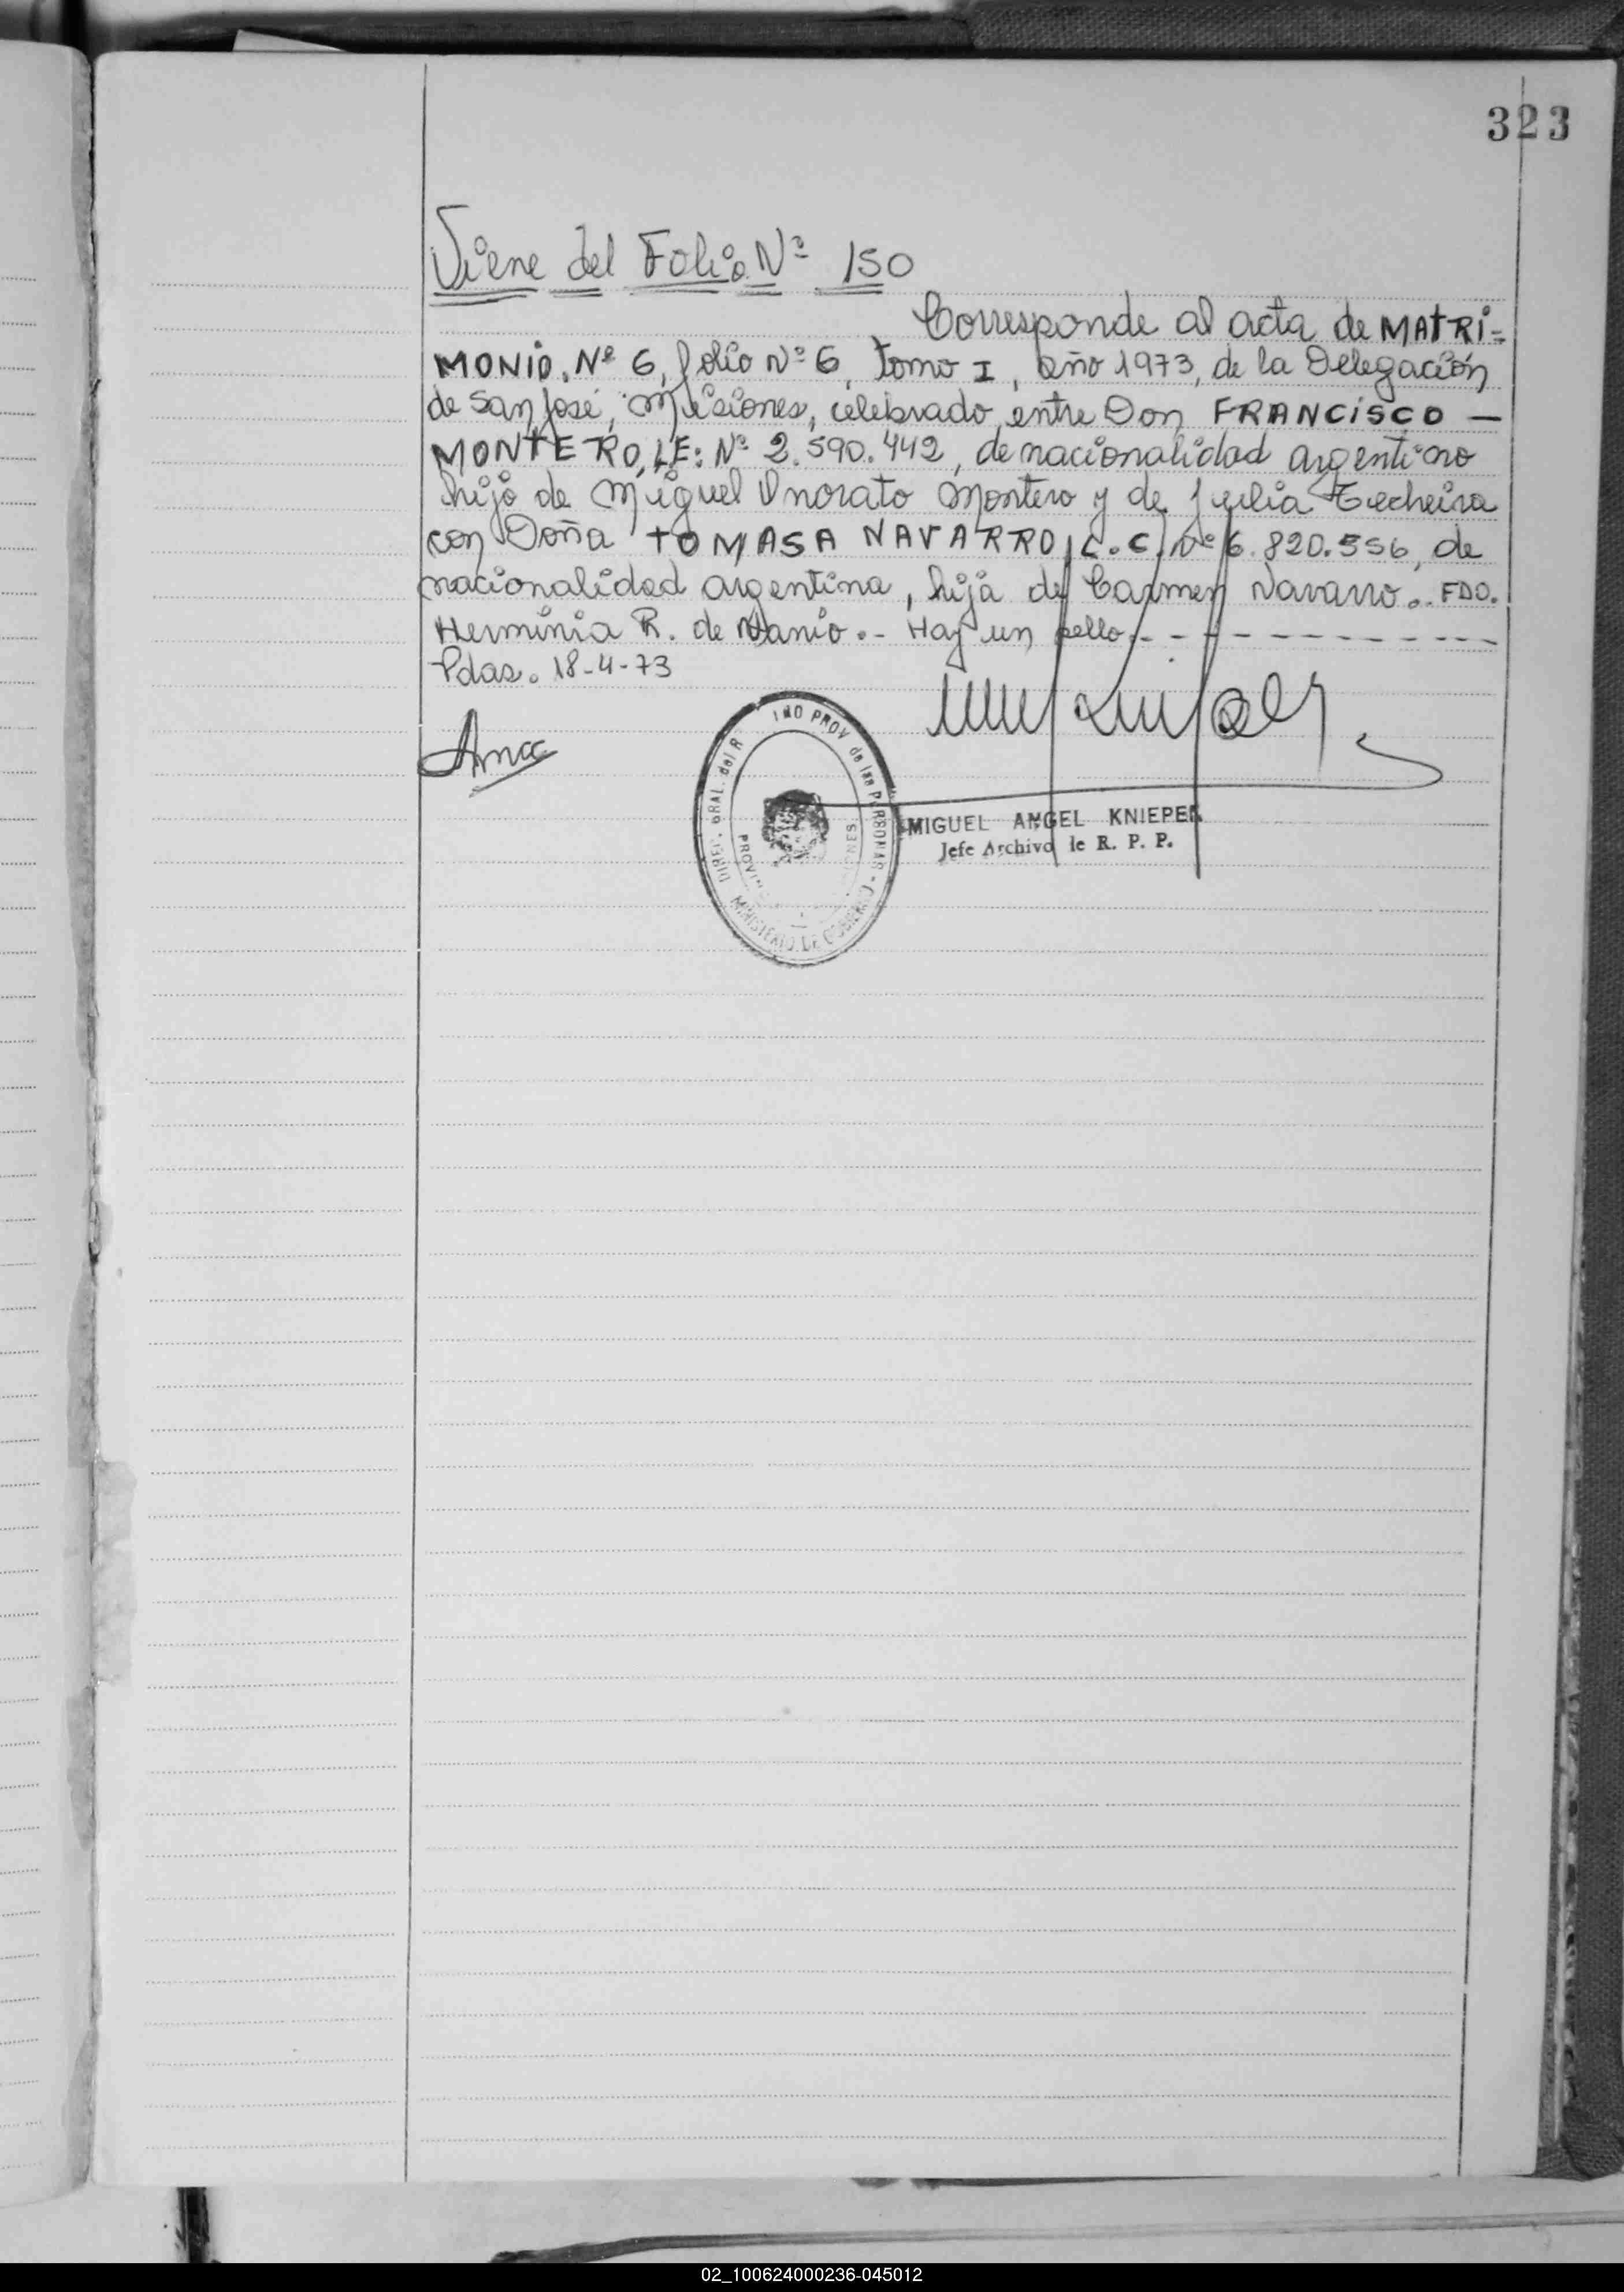 323
Viene del Folio Nº 150
Corresponde al acta de MATRI=
MONIO, Nº 6, folio Nº 6, tomo I, año 1973, de la Delegación
de San José, Misiones, celebrado entre Don FRANCISCO —
MONTERO, LE: Nº 2.590.442, de nacionalidad argentino
hijo de Miguel Onorato Montero y de Julia Techeira
con Doña TOMASA NAVARRO, C.C. Nº 6.820.556, de
nacionalidad argentina, hija de Carmen Navarro.. FDO.
Herminia R. de .- Hay un sello.- - - - - - - - - -
Pdas. 18-4-73
DIREC. GRAL. del R INO PROV de las PERSONAS
MINISTERIO DE GOBIERNO
MIGUEL ANGEL KNIEPER
Jefe Archivo le R. P. P.
02_100624000236-045012